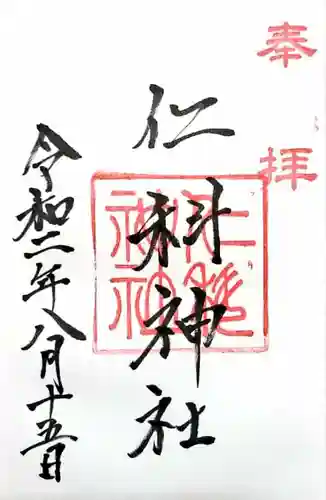 奉拝
仁科神社
仁科神社
令和二年八月十五日